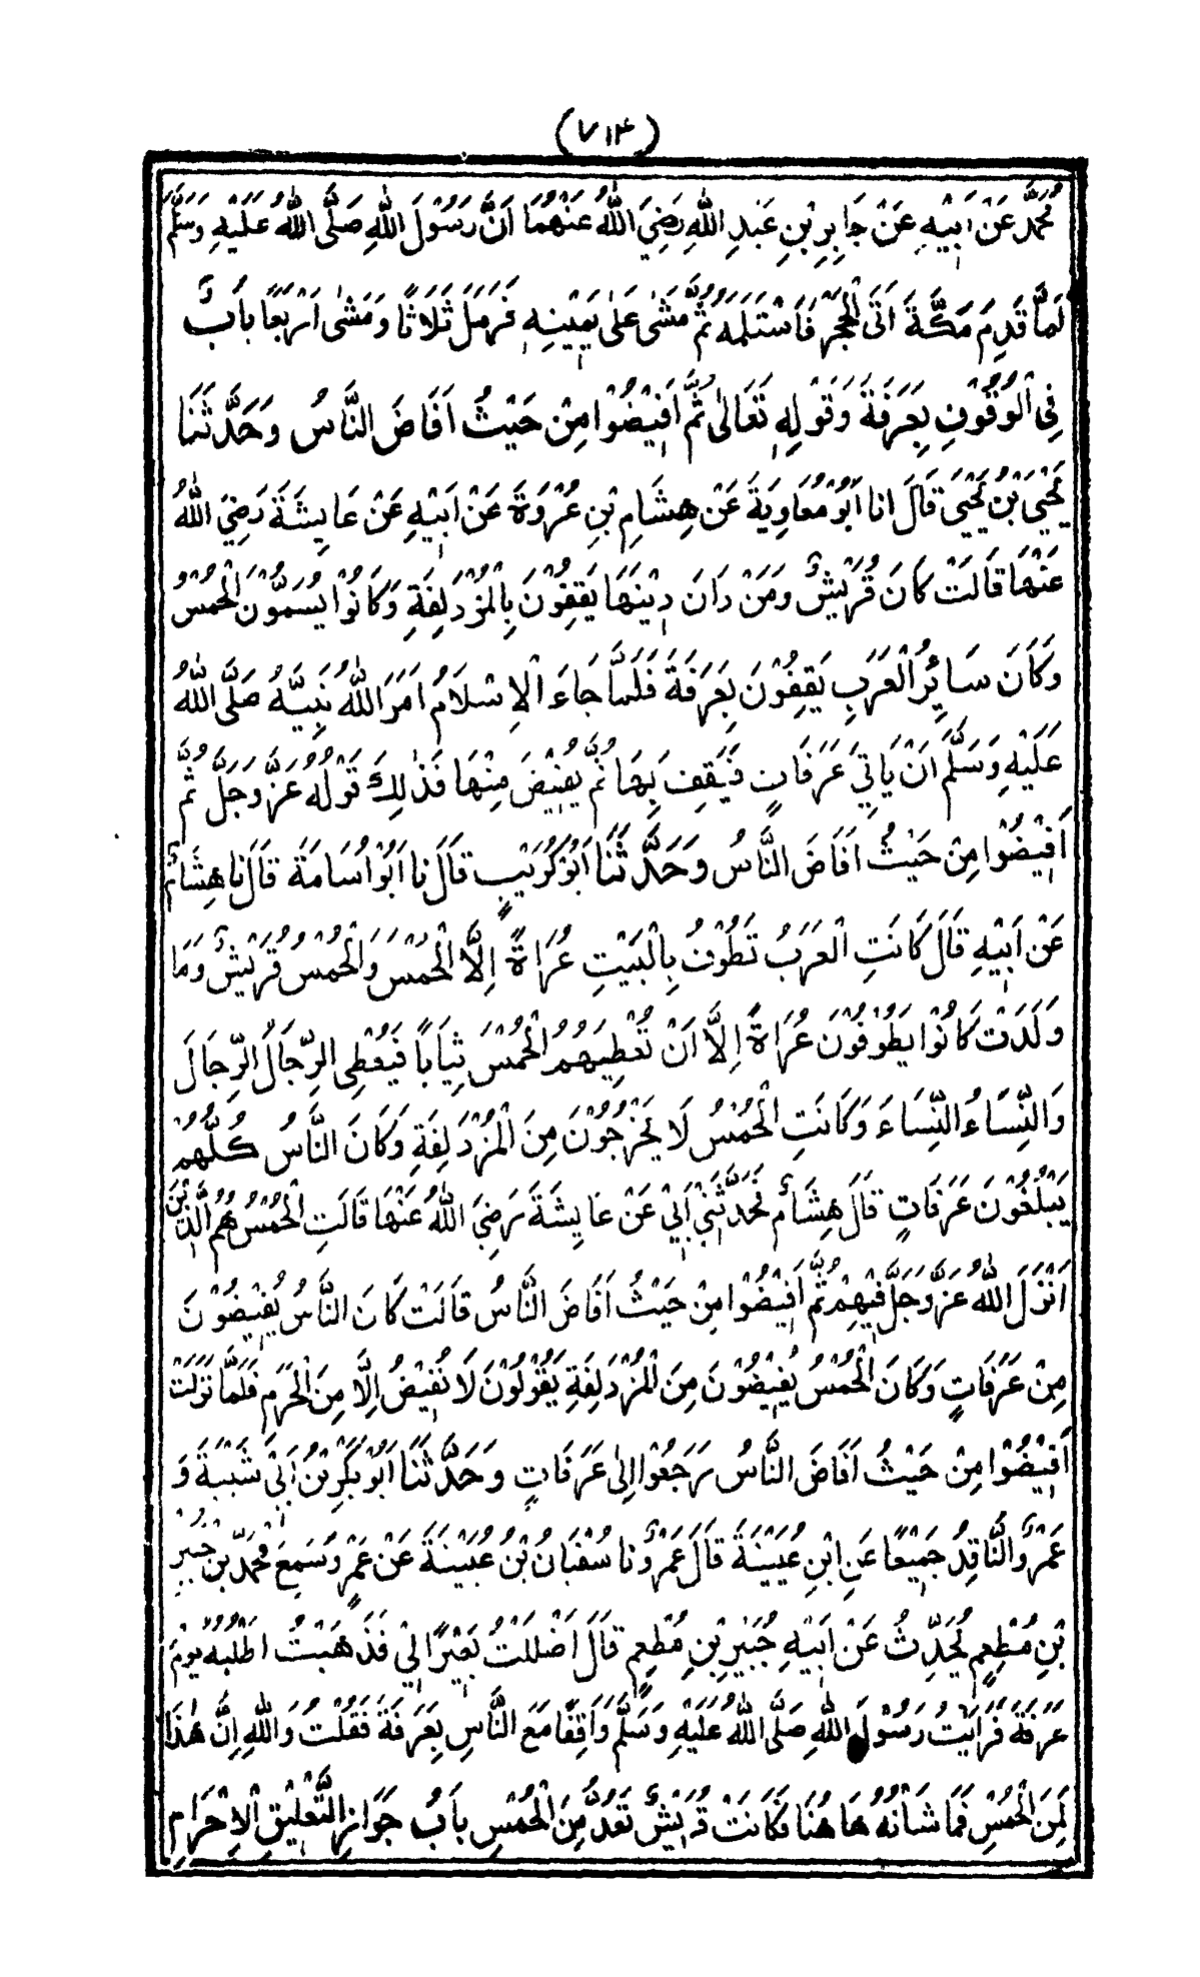 (۷۱۴)
مُحَمَّدٌ عَنْ اَبِيْهِ عَنْ جَابِرِ بْنِ عَبْدِ اللّٰهِ رَضِيَ اللّٰهُ عَنْهُمَا اَنَّ رَسُوْلَ اللّٰهِ صَلَّى اللّٰهُ عَلَيْهِ وَسَلَّمَ
لَمَّا قَدِمَ مَكَّةَ اَتَى الْحَجَرَ فَاسْتَلَمَهُ ثُمَّ مَشٰى عَلٰى يَمِيْنِهٖ فَرَمَلَ ثَلَاثًا وَمَشٰى اَرْبَعًا بَابٌ
فِى الْوُقُوْفِ بِعَرَفَةَ وَقَوْلِهٖ تَعَالٰى ثُمَّ اَفِيْضُوْا مِنْ حَيْثُ اَفَاضَ النَّاسُ وَحَدَّثَنَا
يَحْيَى بْنُ يَحْيَى قَالَ انا اَبُوْ مُعَاوِيَةَ عَنْ هِشَامِ بْنِ عُرْوَةَ عَنْ اَبِيْهِ عَنْ عَايِشَةَ رَضِيَ اللّٰهُ
عَنْهَا قَالَتْ كَانَ قُرَيْشٌ وَمَنْ دَانَ دِيْنَهَا يَقِفُوْنَ بِالْمُزْدَلِفَةِ وَكَانُوْا يُسَمَّوْنَ الْحُمْسُ
وَكَانَ سَائِرُ الْعَرَبِ يَقِفُوْنَ بِعَرَفَةَ فَلَمَّا جَاءَ الْاِسْلَامُ اَمَرَ اللّٰهُ نَبِيَّهُ صَلَّى اللّٰهُ
عَلَيْهِ وَسَلَّمَ اَنْ يَاتِيَ عَرَفَاتٍ فَيَقِفَ بِهَا ثُمَّ يُفِيْضَ مِنْهَا فَذٰلِكَ قَوْلُهُ عَزَّ وَجَلَّ ثُمَّ
اَفِيْضُوْا مِنْ حَيْثُ اَفَاضَ النَّاسُ وَحَدَّثَنَا اَبُوْ كُرَيْبٍ قَالَ نا اَبُوْ اُسَامَةَ قَالَ نا هِشَامٌ
عَنْ اَبِيْهِ قَالَ كَانَتِ الْعَرَبُ تَطُوْفُ بِالْبَيْتِ عُرَاةً اِلَّا الْحُمْسَ وَالْحُمْسُ قُرَيْشٌ وَمَا
وَلَدَتْ كَانُوْا يَطُوْفُوْنَ عُرَاةً اِلَّا اَنْ تُعْطِيَهُمُ الْحُمْسُ ثِيَابًا فَيُعْطِى الرِّجَالُ الرِّجَالَ
وَالنِّسَاءُ النِّسَاءَ وَكَانَتِ الْحُمْسُ لَا يَخْرُجُوْنَ مِنَ الْمُزْدَلِفَةِ وَكَانَ النَّاسُ كُلُّهُمْ
يَبْلُغُوْنَ عَرَفَاتٍ قَالَ هِشَامٌ فَحَدَّثَنِيْ اَبِيْ عَنْ عَايِشَةَ رَضِيَ اللّٰهُ عَنْهَا قَالَتِ الْحُمْسُ هُمُ الَّذِيْنَ
اَنْزَلَ اللّٰهُ عَزَّ وَجَلَّ فِيْهِمْ ثُمَّ اَفِيْضُوْا مِنْ حَيْثُ اَفَاضَ النَّاسُ قَالَتْ كَانَ النَّاسُ يُفِيْضُوْنَ
مِنْ عَرَفَاتٍ وَكَانَ الْحُمْسُ يُفِيْضُوْنَ مِنَ الْمُزْدَلِفَةِ يَقُوْلُوْنَ لَا نُفِيْضُ اِلَّا مِنَ الْحَرَمِ فَلَمَّا نَزَلَتْ
اَفِيْضُوْا مِنْ حَيْثُ اَفَاضَ النَّاسُ رَجَعُوْا اِلٰى عَرَفَاتٍ وَحَدَّثَنَا اَبُوْ بَكْرِ بْنُ اَبِيْ شَيْبَةَ وَ
عَمْرٌو النَّاقِدُ جَمِيْعًا عَنِ ابْنِ عُيَيْنَةَ قَالَ عَمْرٌو نا سُفْيَانُ بْنُ عُيَيْنَةَ عَنْ عَمْرٍو سَمِعَ مُحَمَّدَ بْنَ جُبَيْرِ
بْنِ مُطْعِمٍ يُحَدِّثُ عَنْ اَبِيْهِ جُبَيْرِ بْنِ مُطْعِمٍ قَالَ اَضْلَلْتُ بَعِيْرًا لِيْ فَذَهَبْتُ اَطْلُبُهُ يَوْمَ
عَرَفَةَ فَرَاَيْتُ رَسُوْلَ اللّٰهِ صَلَّى اللّٰهُ عَلَيْهِ وَسَلَّمَ وَاقِفًا مَعَ النَّاسِ بِعَرَفَةَ فَقُلْتُ وَاللّٰهِ اِنَّ هٰذَا
لَمِنَ الْحُمْسِ فَمَا شَاْنُهُ هَاهُنَا فَكَانَتْ قُرَيْشٌ تُعَدُّ مِنَ الْحُمْسِ بَابُ جَوَازِ التَّعْلِيْقِ الْاِحْرَامِ